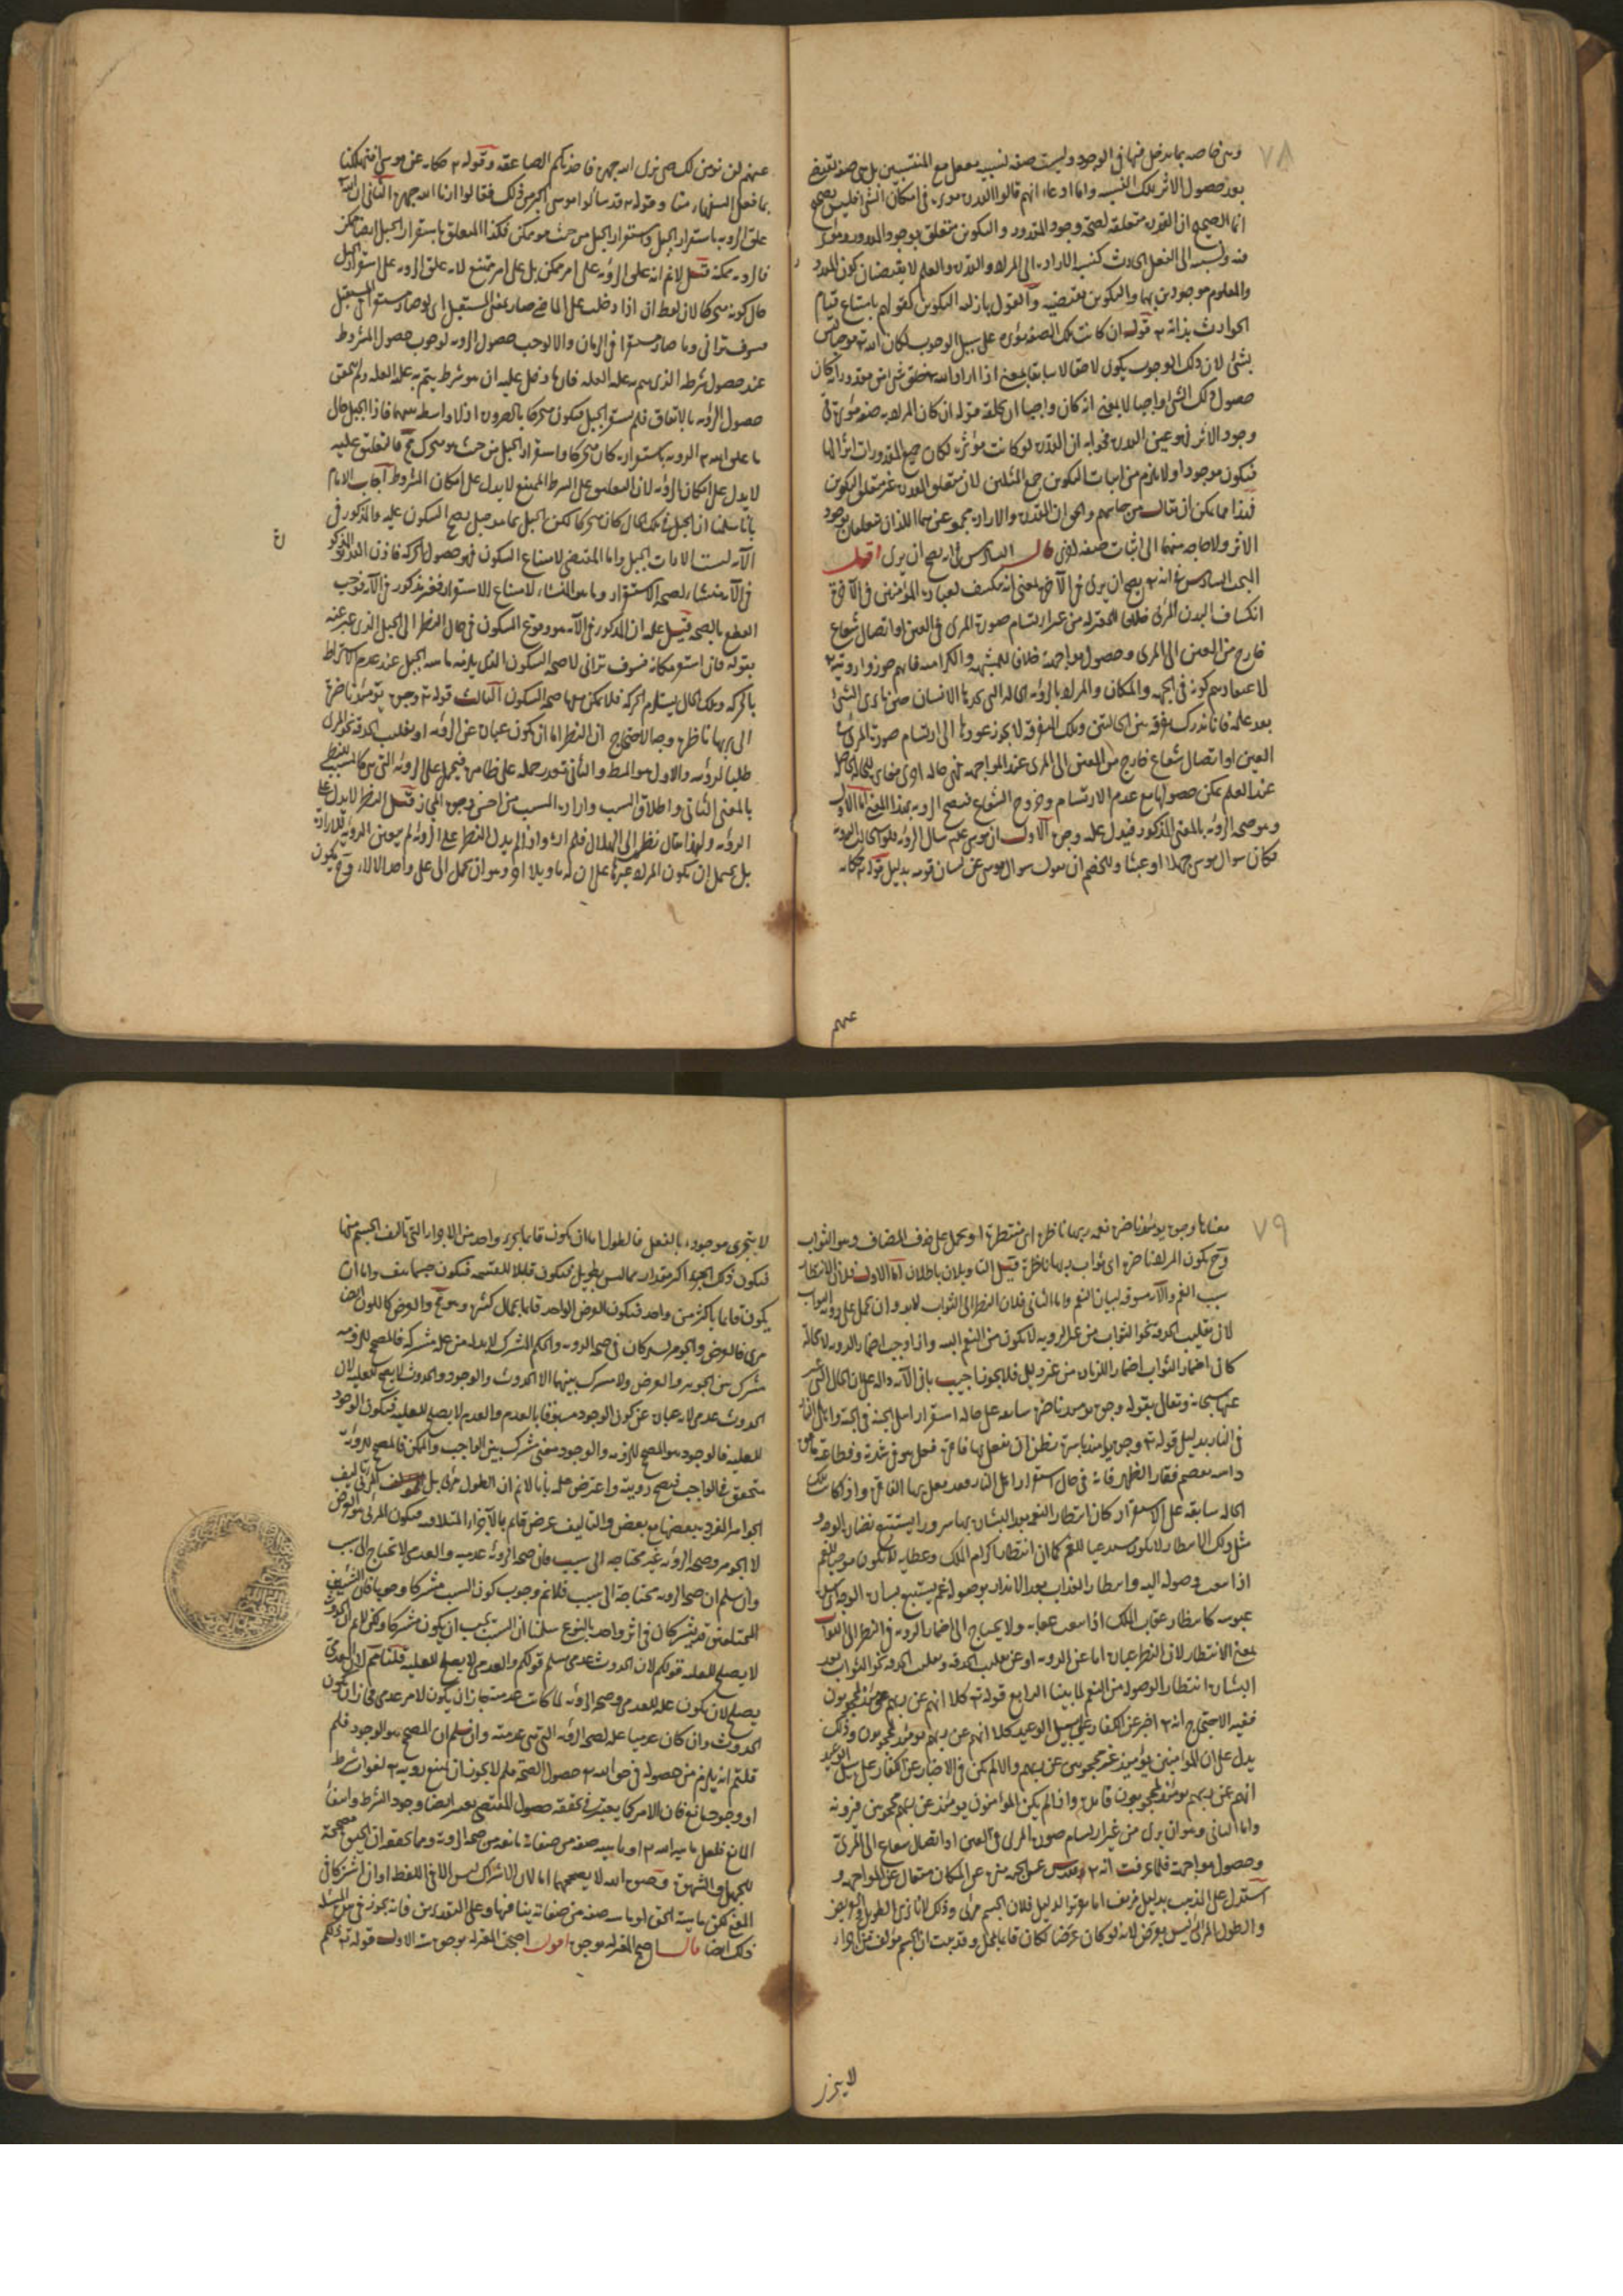 ٧٨
وهى خاصة بما يدخل منها فى الوجود وليست صفة نسبية يعقل مع المنتسبين بل هى صفة تقتضى
بعد حصول الاثر تلك النسبة واما ادعاء انهم قالوا القدرة مؤثرة فى امكان الشئ فليس بصحيح
انما الصحيح ان القدرة متعلقة لصحة وجود المقدور والتكوين متعلق بوجود المقدور ومؤثر
فيه ونسبته الى الفعل الحادث كنسبة الارادة الى المراد والقدرة والعلم لا يقتضيان كون المقدور
والمعلوم موجودين بهما والتكوين يقتضيه والقول بازلية التكوين كقولهم بامتناع قيام
الحوادث بذاته قوله ان كانت تلك الصفة مؤثرة على سبيل الوجوب لكان الله موجبا ليس
بشئ لان ذلك الوجوب يكون لاحقا لا سابقا بمعنى اذا اراد الله خلق شئ من مقدوراته كان
حصول ذلك الشئ واجبا لا بمعنى انه كان واجبا ان يخلقه قوله ان كان المراد به صفة مؤثرة فى
وجود الاثر فهو عين القدرة فجوابه ان القدرة لو كانت مؤثرة لكان جميع المقدورات اثرا لها
فيكون موجودا ولا يلزم من اثبات التكوين جمع المثلين لان متعلق القدرة غير متعلق التكوين
فهذا مما يمكن ان يقال من جانبهم والحق ان القدرة والارادة مجموعين هما اللذان يتعلقان بوجود
الاثر ولا حاجة معهما الى اثبات صفة اخرى قال السادس فى انه يصح ان يرى اقول
البحث السادس فى انه يصح ان يرى فى الآخرة بمعنى انه ينكشف لعباده المؤمنين فى الآخرة
انكشاف البدر المرئى خلافا للمعتزلة من غير ارتسام صورة المرئى فى العين او اتصال شعاع
خارج من العين الى المرئى وحصول مواجهة خلافا للمشبهة والكرامية فانهم جوزوا رويته
لاعتقادهم كونه فى الجهة والمكان والمراد بالرؤية الحالة التى يجدها الانسان حين ما يرى الشئ
بعد علمه فانا ندرك تفرقة بين الحالتين وتلك التفرقة لا يجوز عودها الى ارتسام صورة المرئى فى
العين او اتصال شعاع خارج من العين الى المرئى عند المواجهة فهى حالة اخرى مغايرة للحالة الحاصلة
عند العلم يمكن حصولها مع عدم الارتسام وخروج الشعاع فيصح الروية بهذا المعنى اما الاول
وهو صحة الرؤية بالمعنى المذكور فيدل عليه وجوه الاول ان موسى عليه سال الرؤية فلو استحالت الروية
فكان سوال موسى جهلا او عبثا وللخصم ان يقول سوال موسى عن لسان قومه بدليل قوله حكاية
عنهم
عنهم لن نومن لك حتى نرى الله جهرة فاخذتكم الصاعقة وقوله حكاية عن موسى اتهلكنا
بما فعل السفهاء منا وقوله فقد سألوا موسى اكبر من ذلك فقالوا ارنا الله جهرة الثانى ان الله
علق الروية باستقرار الجبل واستقرار الجبل من حيث هو ممكن فكذا المعلق باستقرار الجبل ايضا ممكن
فالروية ممكنة قيل لا نم انه علق الرؤية على امر ممكن بل على امر ممتنع لانه علق الروية على استقرار الجبل
حال كونه متحركا لان لفظ ان اذا دخلت على الماضى صار بمعنى المستقبل اى لو صار مستقرا فى المستقبل
فسوف ترانى وما صار مستقرا فى الزمان والا لوجب حصول الروية لوجوب حصول المشروط
عند حصول شرطه الذى يتم به علية العلة فان ما دخل عليه ان هو شرط يتم به علية العلة ولم يتحقق
حصول الرؤية بالاتفاق فلم يستقر الجبل فيكون متحركا بالضرورة اذ لا واسطة بينهما فاذا الجبل حال
ما علق الله الروية باستقراره كان متحركا واستقرار الجبل من حيث هو متحرك مح فالتعليق عليه
لا يدل على امكان الرؤية لان التعليق على الشرط الممتنع لا يدل على امكان المشروط اجاب الامام
بانا سلمنا ان الجبل فى تلك الحال كان متحركا لكن الجبل بما هو جبل يصح السكون عليه والمذكور فى
الآية ليست الا ذات الجبل واما المقتضى لامتناع السكون فهو حصول الحركة فاذن القدر المذكور
فى الآية منشاء لصحة الاستقرار وما هو المنشاء لامتناع الاستقرار فغير مذكور فى الآية فوجب
القطع بالصحة قيل عليه ان المذكور فى الآية هو وقوع السكون فى حال النظر الى الجبل الذى عبر عنه
بقوله فان استقر مكانه فسوف ترانى لا صحة السكون الذى يلزمه ماهية الجبل عند عدم الاشتراط
بالحركة وتلك الحال يستلزم الحركة فلا يمكن معها صحة السكون الثالث قوله وجوه يومئذ ناضرة
الى ربها ناظرة وجه الاحتجاج ان النظر اما ان يكون عبارة عن الرؤية او تقليب الحدقة نحو المرئى
طلبا لرؤيته والاول هو المط والثانى تعذر حمله على ظاهره فيحمل على الرؤية التى هى كالمسبب للنظر
بالمعنى الثانى واطلاق السبب وارادة المسبب من احسن وجوه المجاز قيل النظر لا يدل على
الرؤية ولهذا يقال نظرت الى الهلال فلم اره واذا لم يدل النظر على الرؤية لم يتعين الرؤية للارادة
بل يحتمل ان يكون المراد غيرها على ان له تاويلا آخر وهو ان يحمل الى على واحد الآلاء وح يكون
ن
٧٩
معناها وجوه يومئذ ناضرة نعمة ربها ناظرة اى منتظرة او يحمل على حذف المضاف وهو الثواب
وح يكون المراد ناضرة اى ثواب ربها ناظرة قيل التاويلان باطلان اما الاول فلان الانتظار
سبب الغم والآية مسوقة لبيان النعم واما الثانى فلان النظر الى الثواب لا بد وان يحمل على روية الثواب
لان تقليب الحدقة نحو الثواب من غير الروية لا يكون من النعم البتة واذا وجب اضمار الروية لا محالة
كان اضمار الثواب اضمارا لزيادة من غير دليل فلا يجوز اجيب بان الآية دالة على ان الحال التى عبر
عنها سبحانه وتعالى بقوله وجوه يومئذ ناضرة سابقة على حالة استقرار اهل الجنة فى الجنة واهل النار
فى النار بدليل قوله وجوه يومئذ باسرة تظن ان يفعل بها فاقرة فعل هو فى شدته وفظاعته فاقرة
داهية يقصم فقار الظهر فانه فى حال استقرار اهل النار قد فعل بها الفاقرة واذا كانت تلك
الحالة سابقة على الاستقرار كان انتظار النعمة بعد البشارة بها سرورا يستتبع نضارة الوجوه
مثل ذلك الانتظار لا يكون مستدعيا للغم كما ان انتظار اكرام الملك وعطاءه لا يكون موجبا للغم
اذا تيقن وصوله اليه وانتظار العذاب بعد الانذار بوصوله غم يستتبع بسارة الوجه كل
عبوسة كانتظار عقاب الملك اذا تيقن عقابه ولا يحتاج الى اضمار الروية فى النظر الى الثواب
بمعنى الانتظار لان النظر عبارة اما عن الروية او عن تقليب الحدقة وتقليب الحدقة نحو الثواب بعد
البشارة انتظارا لوصوله من النعم لما بينا الرابع قوله كلا انهم عن ربهم يومئذ لمحجوبون
ففيه الاحتجاج انه اخبر عن الكفار على سبيل الوعيد كلا انهم عن ربهم يومئذ لمحجوبون وذلك
يدل على ان المؤمنين يومئذ غير محجوبين عن ربهم والا لم يكن فى الاخبار عن الكفار على سبيل الوعيد
انهم عن ربهم يومئذ لمحجوبون فائدة واذا لم يكن المؤمنون يومئذ عن ربهم محجوبين فيرونه
واما الثانى وهو ان يرى من غير ارتسام صورة المرئى فى العين او اتصال شعاع الى المرئى
وحصول مواجهة فلما عرفت انه تقدس عن الجهة منزه عن المكان متعال عن المواجهة و
استدل على المذهب بدليل مزيف اما تقرير الدليل فلان الجسم مرئى وذلك لانا نرى الطويل والعريض
والطول المرئى ليس بعرض لانه لو كان عرضا لكان قائما بمحل وقد ثبت ان الجسم مؤلف من اجزاء
لا يتجزى
لا يتجزى موجودة بالفعل فالطول اما ان يكون قائما بجزء واحد من الاجزاء التى تألف الجسم منها
فيكون ذلك الجزء اكثر مقدارا مما ليس بطويل فيكون قابلا للقسمة فيكون جسما هف واما ان
يكون قائما باكثر من واحد فيكون العرض الواحد قائما بمحال كثيرة وهو مح والعرض كاللون ايضا
مرئى فالعرض والجوهر يشتركان فى صحة الروية والحكم المشترك لا بد له من علة مشتركة فالمصحح للرؤية
مشترك بين الجوهر والعرض ولا مشترك بينهما الا الحدوث والوجود والحدوث لا يصلح للعلية لان
الحدوث عدمى لانه عبارة عن كون الوجود مسبوقا بالعدم والعدم لا يصلح للعلية فيكون الوجود
للعلية فالوجود هو المصحح للرؤية والوجود معنى مشترك بين الواجب والممكن فالمصحح للرؤية
متحقق فى الواجب فيصح رويته واعترض عليه بانا لا نم ان الطول مرئى بل المرئى تاليف
الجواهر الفردة بعضها مع بعض والتاليف عرض قائم بالاجزاء المتلاقية فيكون المرئى هو العرض
لا الجوهر وصحة الرؤية غير محتاجة الى سبب فان صحة الرؤية عدمية والعدمى لا تحتاج الى سبب
وان سلم ان صحة الروية محتاجة الى سبب فلا نم وجوب كون السبب مشتركا وجوبا فان الشيئين
المختلفين قد يشتركان فى اثر واحد بالنوع سلمنا ان السبب يجب ان يكون مشتركا ولكن لا نم ان الحدوث
لا يصلح للعلية قولكم لان الحدوث عدمى سلم قولكم والعدمى لا يصلح للعلية قلنا نعم لان العدمى
يصلح لان يكون علة للعدمى وصحة الرؤية لما كانت عدمية جاز ان يكون لامر عدمى فجاز ان يكون
الحدوث وان كان عدميا علة لصحة الرؤية التى هى عدمية وان سلم ان المصحح هو الوجود فلم
قلتم انه يلزم من حصوله فى حق الله حصول الصحة فلم لا يجوز ان يمتنع رويته لفوات شرط
او وجود مانع فان الامر كما يعتبر فى تحققه حصول المقتضى يعتبر ايضا وجود الشرط وانتفاء
المانع فلعل ماهية الله او ماهية صفة من صفاته مانعة من صحة الروية ومما يحققه ان الحيوة مصححة
للجهل والشهوة وحيوة الله لا يصححهما اما لان الاشتراك ليس الا فى اللفظ او ان اشتركا فى
المعنى لكن ماهية الحق او ماهية صفة من صفاته ينافيهما وعلى التقديرين فانه يجوز فى هذه المسئلة
ذلك ايضا قال احتج المعتزلة بوجوه اقول احتجت المعتزلة بوجوه ستة الاول قوله